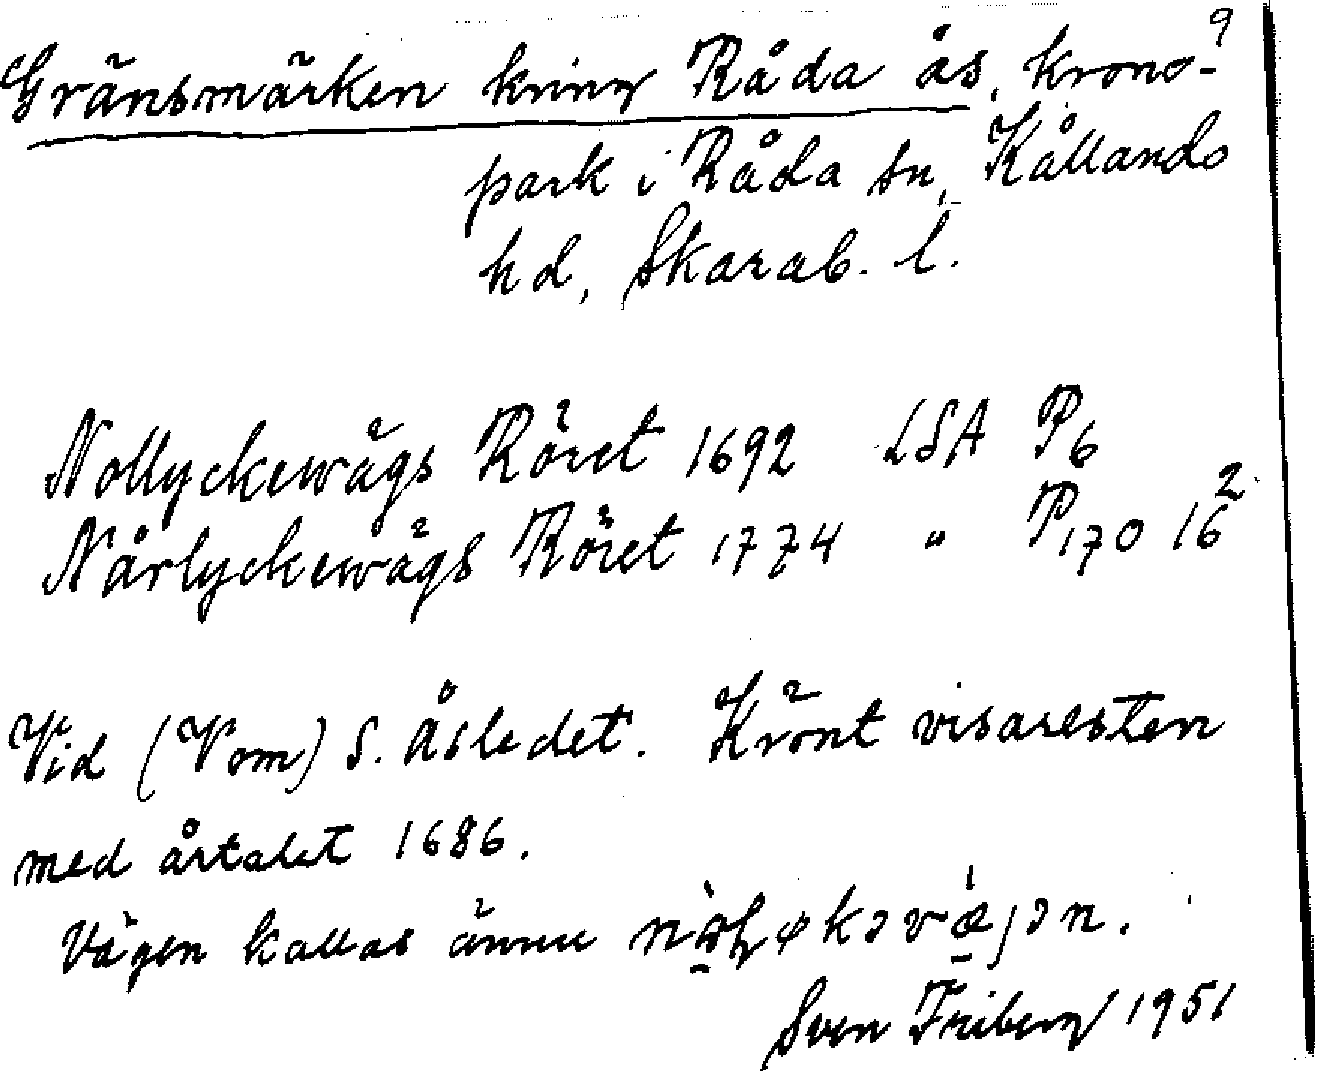 9
Gränsmärken kring Råda ås, krono-
park i Råda sn, Kållands
hd, Skarab. l.
Nollyckewägs Röret 1692 LSA P6
Nårlyckewägs Röret 1774 " P170 16²
Vid (Vom) S. Åsledet. Krönt visaresten
med årtalet 1686.
Vägen kallas ännu
Sven Friberg 1951